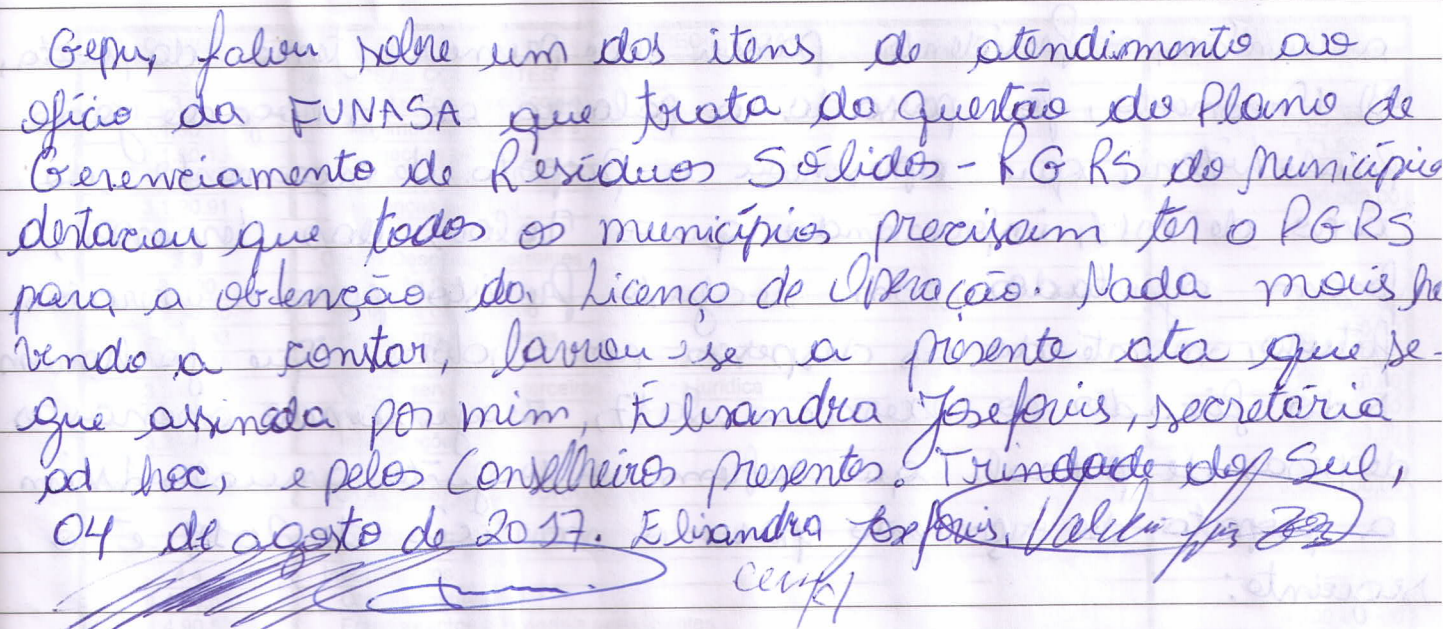 falou sobre um dos itens de atendimento ao
ofício da FUNASA que trata da questão do Plano de
Gerenciamento de Resíduos Sólidos - PGRS do Município
destacou que todos os municípios precisam ter o PGRS
para a obtenção da Licença de Operação. Nada mais ha
vendo a constar, lavrou-se a presente ata que se-
gue assinada por mim, Elisandra Josefovis, secretária
ad hoc, e pelos Conselheiros presentes. Trindade do Sul,
04 de agosto de 2017. Elisandra Josefovis,